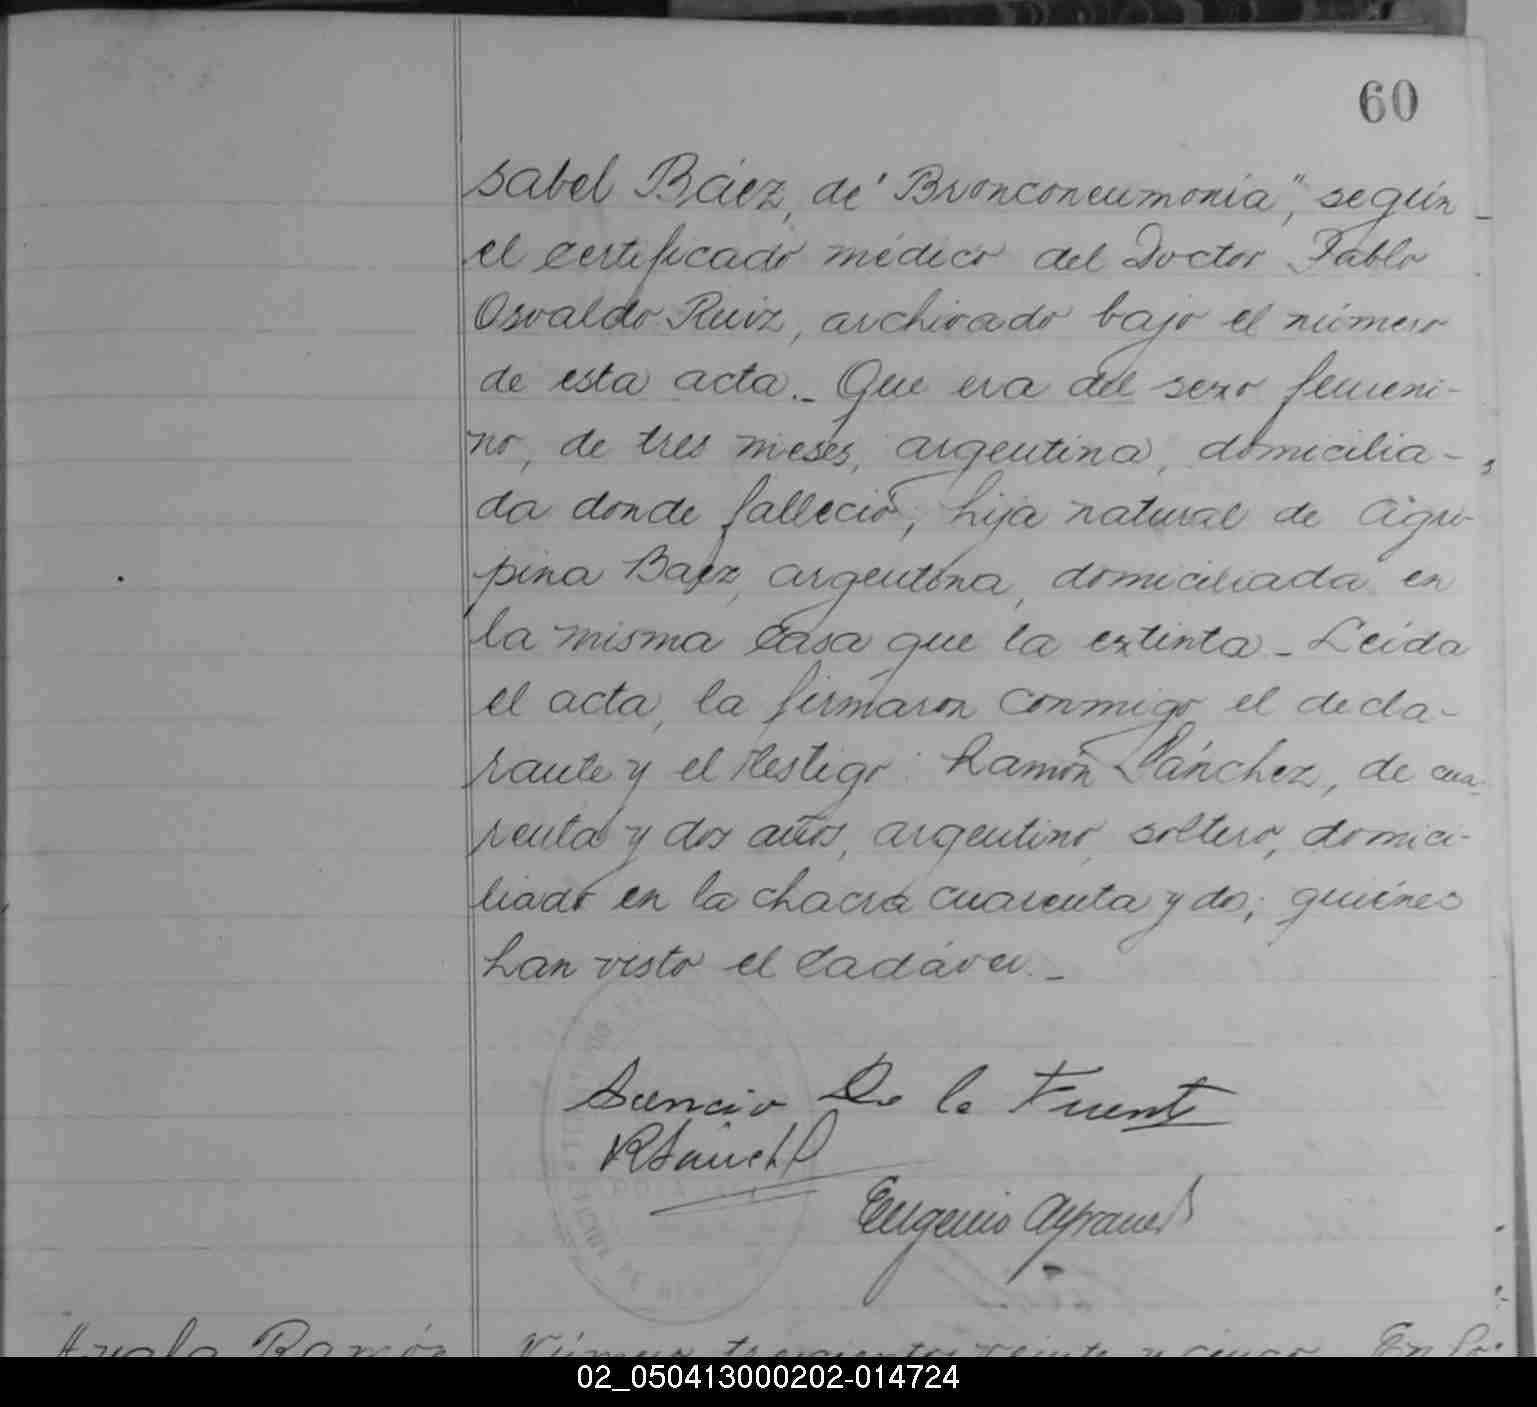 60
sabel Báez, de "Bronconeumonía", según
el certificado médico del Doctor Pablo
Osvaldo Ruiz, archivado bajo el número
de esta acta._ Que era del sexo femeni-
no, de tres meses, argentina, domicilia-
da donde falleció, hija natural de Agri-
pina Baez, argentina, domiciliada en
la misma casa que la extinta_ Leída
el acta, la firmaron conmigo el decla-
rante y el testigo: Ramón Sánchez, de cua-
renta y dos años, argentino, soltero, domici-
liado en la chacra cuarenta y dos; quienes
han visto el cadáver._
De la Fuente
RSánchez
Eugenio
Ayala Ramón
Número trescientos veinte y cinco. En
02_050413000202-014724